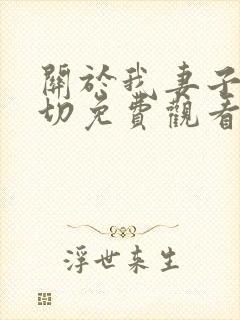 關於我妻子
切免費觀看
浮世来生